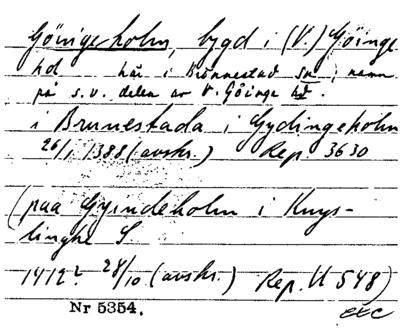 Göingeholm, bygd i (V.) Göinge
hd här i Brönnestad sn; namn
på s.v. delen av V. Göinge hd.
i Brunestada i Gydingeholm
26/1 1388 (avskr.) Rep. 3630
(paa Gyindeholm i Knys-
linghe S.
1412? 28/10 (avskr.) Rep. II 548)
Nr 5354.